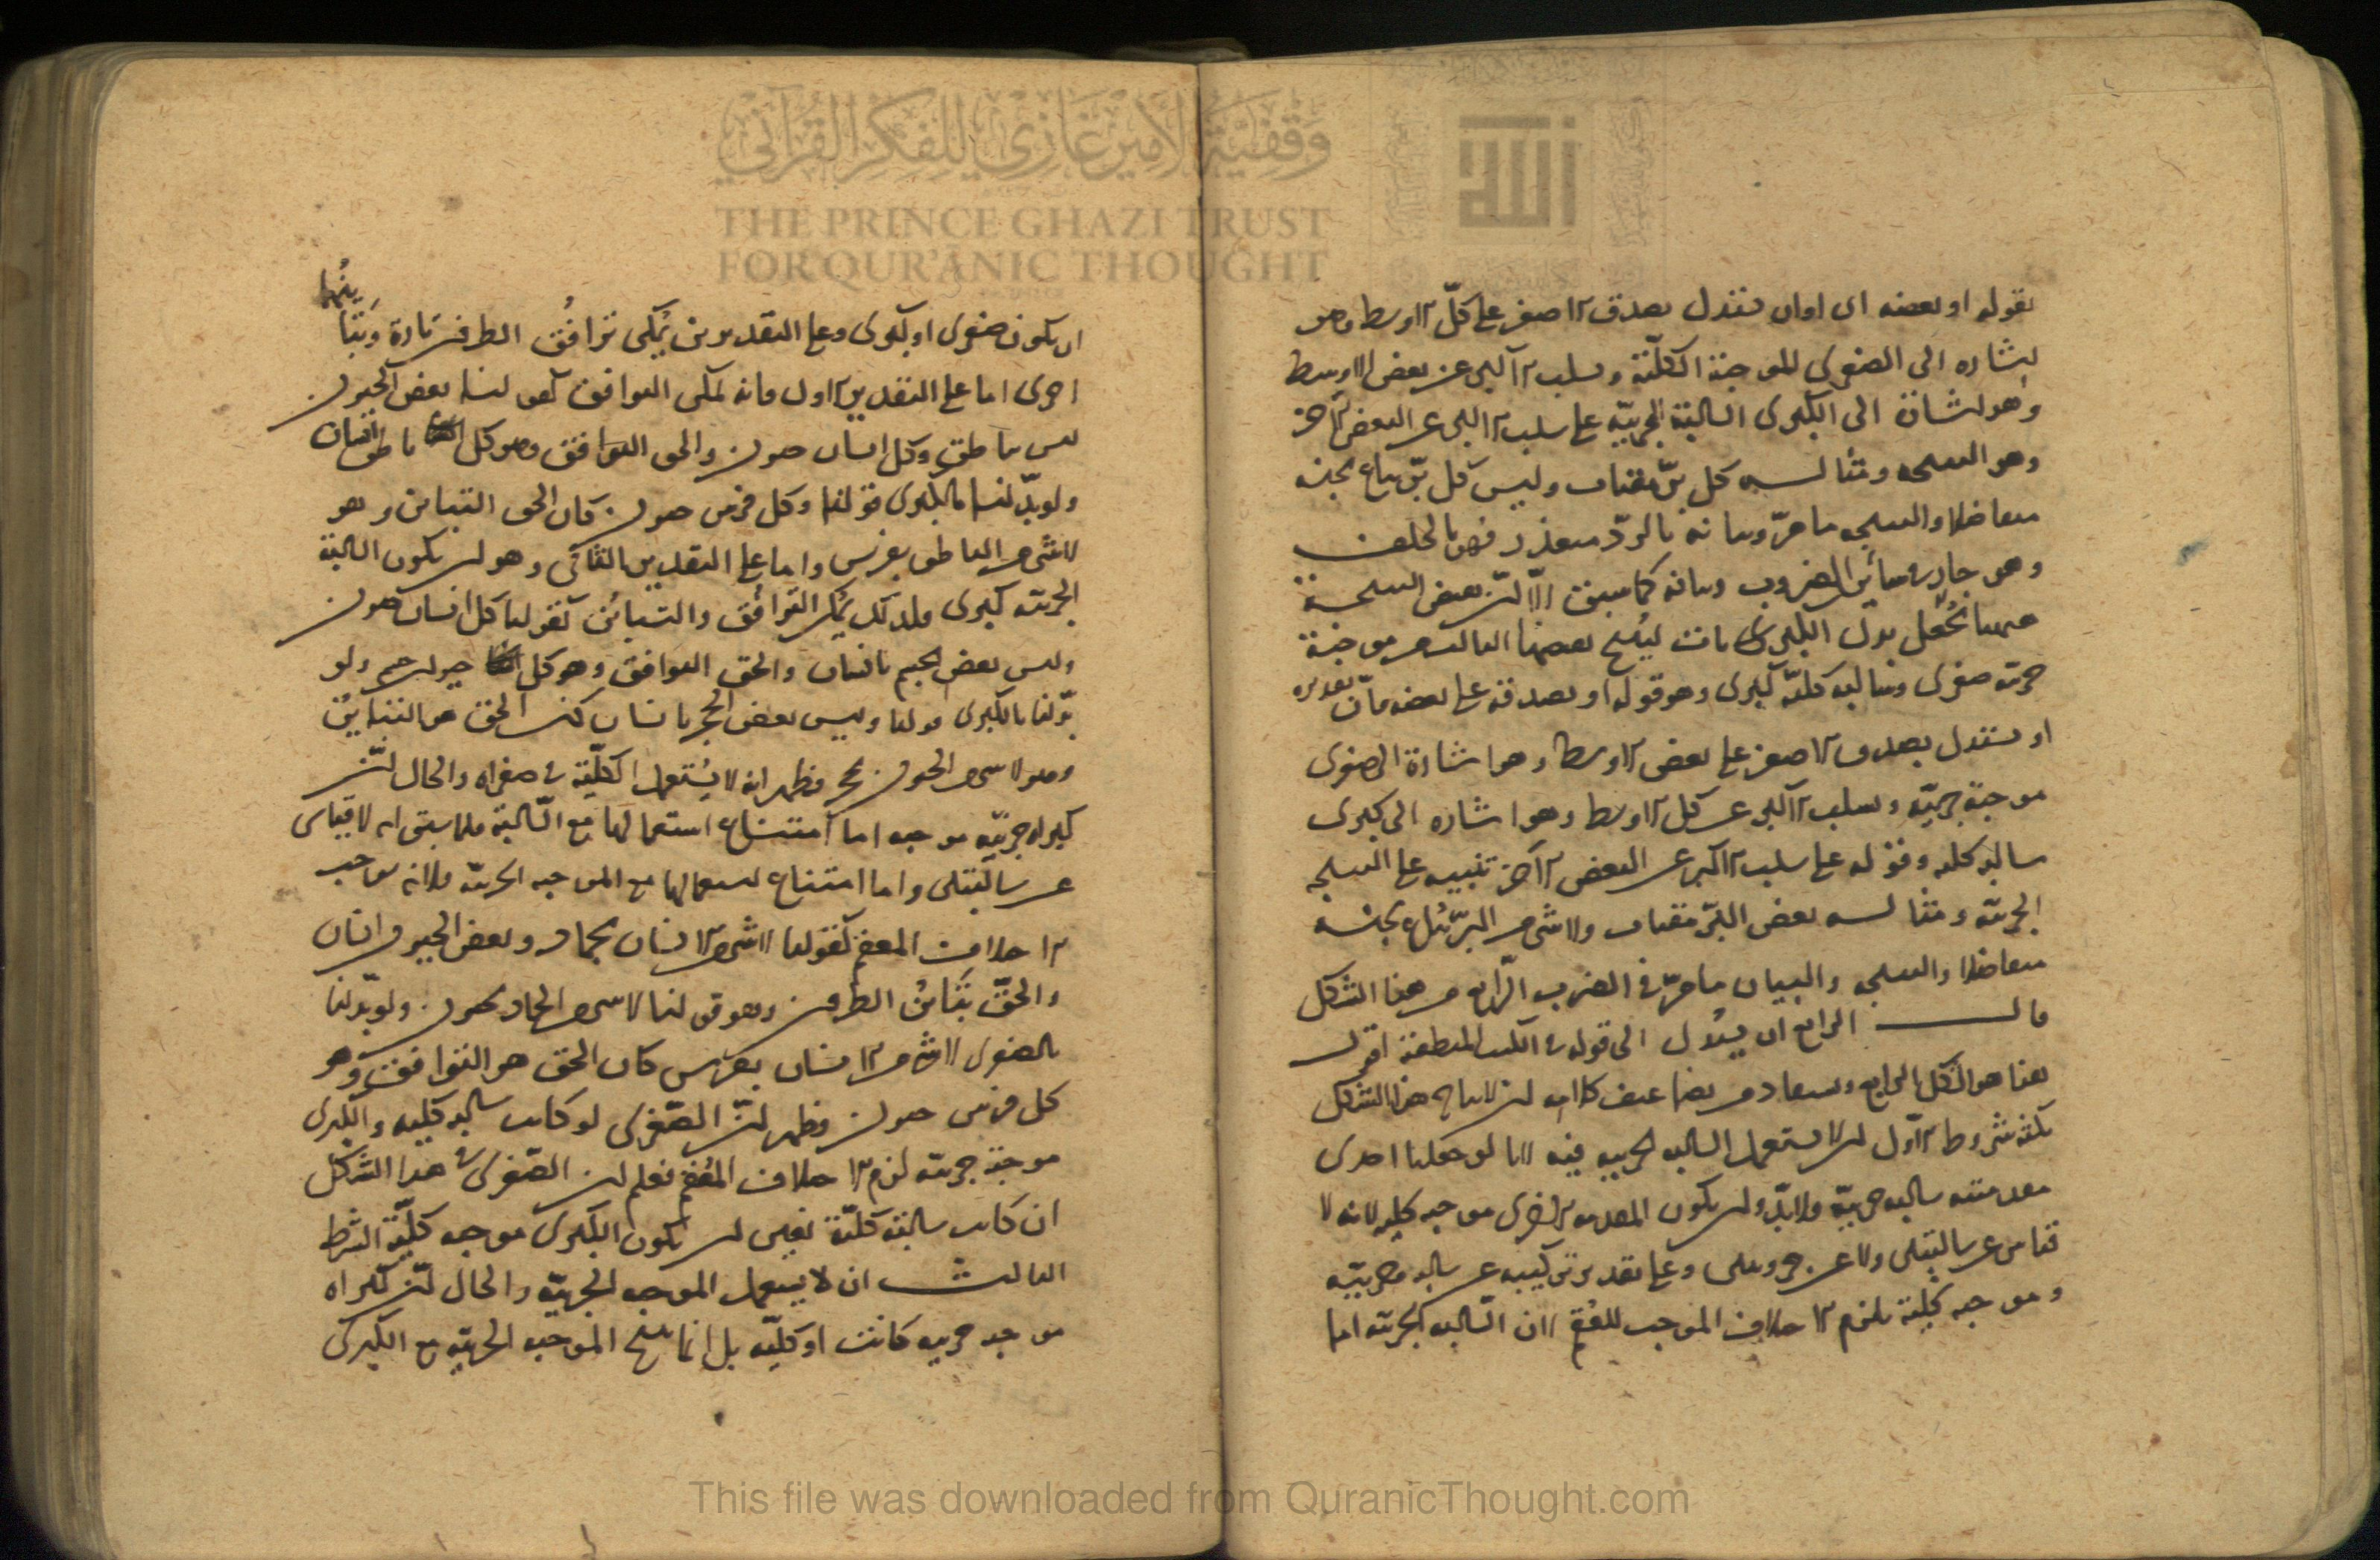 بقوله او بعضه اى اوان يستدل بصدق الاصغر على كلّ الاوسط وهو
اشاره الى الصغرى للموجبة الكلّيّة وسلب الاكبر عن بعض الاوسط
وهو اشارة الى الكبرى السالبة الجزئيّة على سلب الاكبر عن البعض الآخر
وهو النتيجه ومثاله كل برّ مقتات وليس كل برّ يباع بجنسه
متفاضلا والنتيجه ما مرّ وبيانه بالردّ متعذر فهو بالخلف
وهو جار فى سائر الضروب وبيانه كما سبق الّا انّ نقيض النتيجة
ههنا يُجعل بدل الكبرى ثالث يُنتج بعضها الثالث من موجبة
جزئية صغرى وسالبه كليّة كبرى وهو قوله او بصدقه على بعضه فانّ تقديره
او يستدل بصدق الاصغر على بعض الاوسط وهو اشارة الى صغرى
موجبة جزئيّة وبسلب الاكبر عن كل الاوسط وهو اشاره الى كبرى
سالبه كليه وقوله على سلب الاكبر عن البعض الآخر تنبيه على النتيجه
الجزئية ومثاله بعض البرّ مقتات ولا شى من البرّ يباع بجنسه
متفاضلا والنتيجه والبيان ما مرّ فى الضرب الرّابع من هذا الشكل
قال الرابع ان يستدل الى قوله فى الكتب المنطقية اقول
هذا هو الشكل الرابع ويستفاد من تضاعيف كلامه ان لانتاج هذا الشكل
ثلثة شروط الاوّل ان لا يستعمل السالبه الجزئيه فيه لانا لو جعلنا احدى
مقدمتيه سالبه جزئيّة فلا بدّ وان يكون المقدمه الاخرى موجبه كليه لانه لا
قياس عن سالبتين ولا عن جزويتين وعلى تقدير تركيبه عن سالبه جزئيّه
وموجبه كليّة يلزم الاختلاف الموجب للعُقم لان السّالبه الجزئية اما
ان يكون صغرى او كبرى وعلى التقديرين يُمكن توافُق الطرفين تارة وتباينُهما
اخرى اما على التقدير الاول فانه يمكن التوافق كقولنا بعض الحيوان
ليس بناطق وكل انسان حيوان والحق التوافق وهو كل ناطق انسان
ولو بدّلنا بالكبرى قولنا وكل فرس حيوان كان الحق التباين وهو
لا شى من الناطق بفرس واما على التقدير الثّانى وهو ان يكون السالبة
الجزئية كبرى فلذلك يُمكن التوافُق والتباين كقولنا كل انسان حيوان
وليس بعض الجسم بانسان والحق التوافق وهو كل حيوان جسم ولو
بدّلنا بالكبرى قولنا وليس بعض الحجر بانسان كان الحق هو التباين
وهو لا شى من الحيوان بحجر فظهر انه لا يُستعمل الكليّة فى صغراه والحال انّ
كبراه جزئيّه موجبه اما امتناع استعمالها مع السّالبة فلما سبق انه لا قياس
عن سالبتين واما امتناع استعمالها مع الموجبه الجزئيّه فلانه يوجب
الاختلاف المعقم كقولنا لا شى من الانسان بجماد وبعض الحيوان انسان
والحقّ تبايُن الطرفين وهو قولنا لا شى من الجماد بحيوان ولو بدّلنا
بالصغرى لا شى من الانسان بفرس كان الحق هو التوافق وهو
كل فرس حيوان فظهر انّ الصّغرى لو كانت سالبه كليه والكبرى
موجبة جزئية لزم الاختلاف المُعقم فعلم ان الصّغرى فى هذا الشكل
ان كانت سالبة كليّة تعيّن ان يكون الكبرى موجبه كليّة الشرط
الثالث ان لا يستعمل الموجبه الجزئيّه والحال انّ كبراه
موجبه جزئيه كانت او كليّه بل انما ينتج الموجبه الجزئيه مع الكبرى
وقفية الأمير غازي للفكر القرآني
THE PRINCE GHAZI TRUST
FOR QUR'ANIC THOUGHT
الله
This file was downloaded from QuranicThought.com